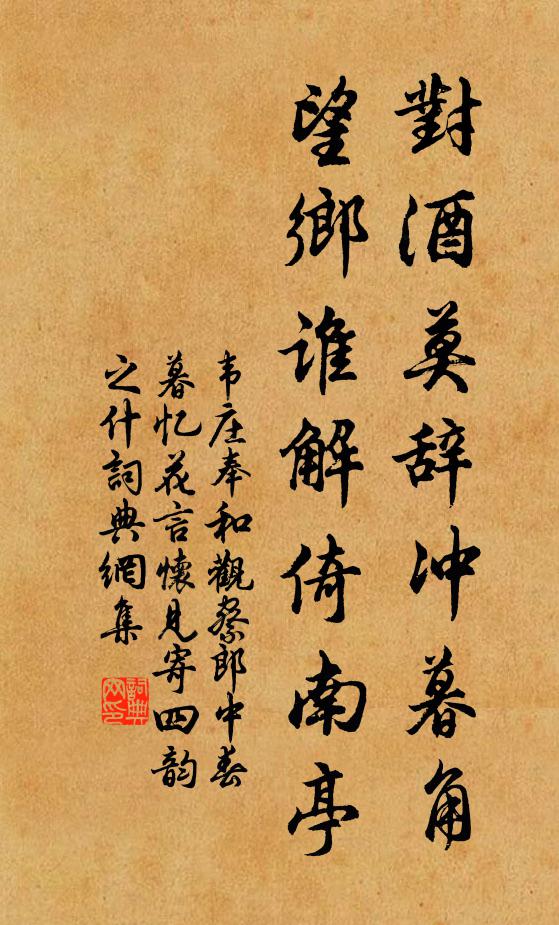 對酒莫辞冲暮角
望鄉谁解倚南亭
韦庄奉和觀察郎中春
暮忆花言懷見寄四韵
之什詞典網集
詞典网印